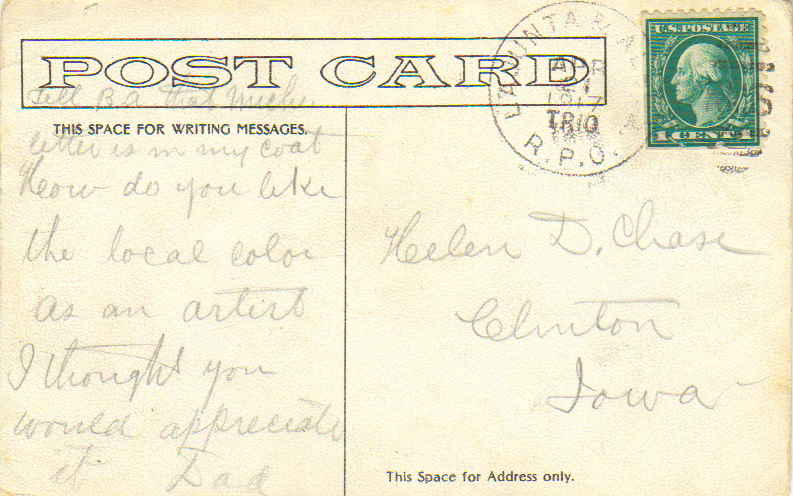 POST CARD
Tell Ba that Mich
THIS SPACE FOR WRITING MESSAGES.
letter is in my coat
How do you like
the local color
as an artist
I thought you
would appreciate
it Dad
APR
21
1917
TR10
R.P.O.
U.S. POSTAGE
1 CENT 1
Helen D. Chase
Clinton
Iowa
This Space for Address only.